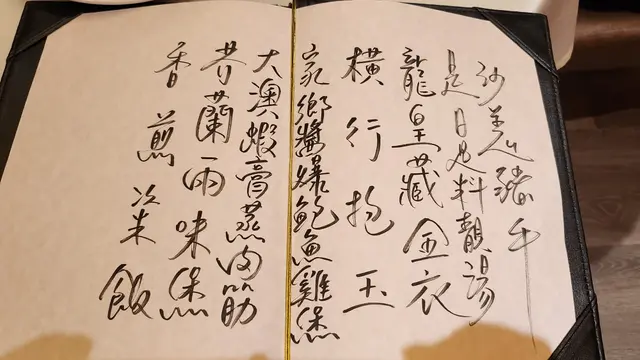 沙姜豬手
是日足料靚湯
龍皇藏金衣
橫行抱玉
家鄉醬爆鮑魚雞煲
大澳蝦膏蒸肉筋
芥蘭兩味煲
香煎粢飯